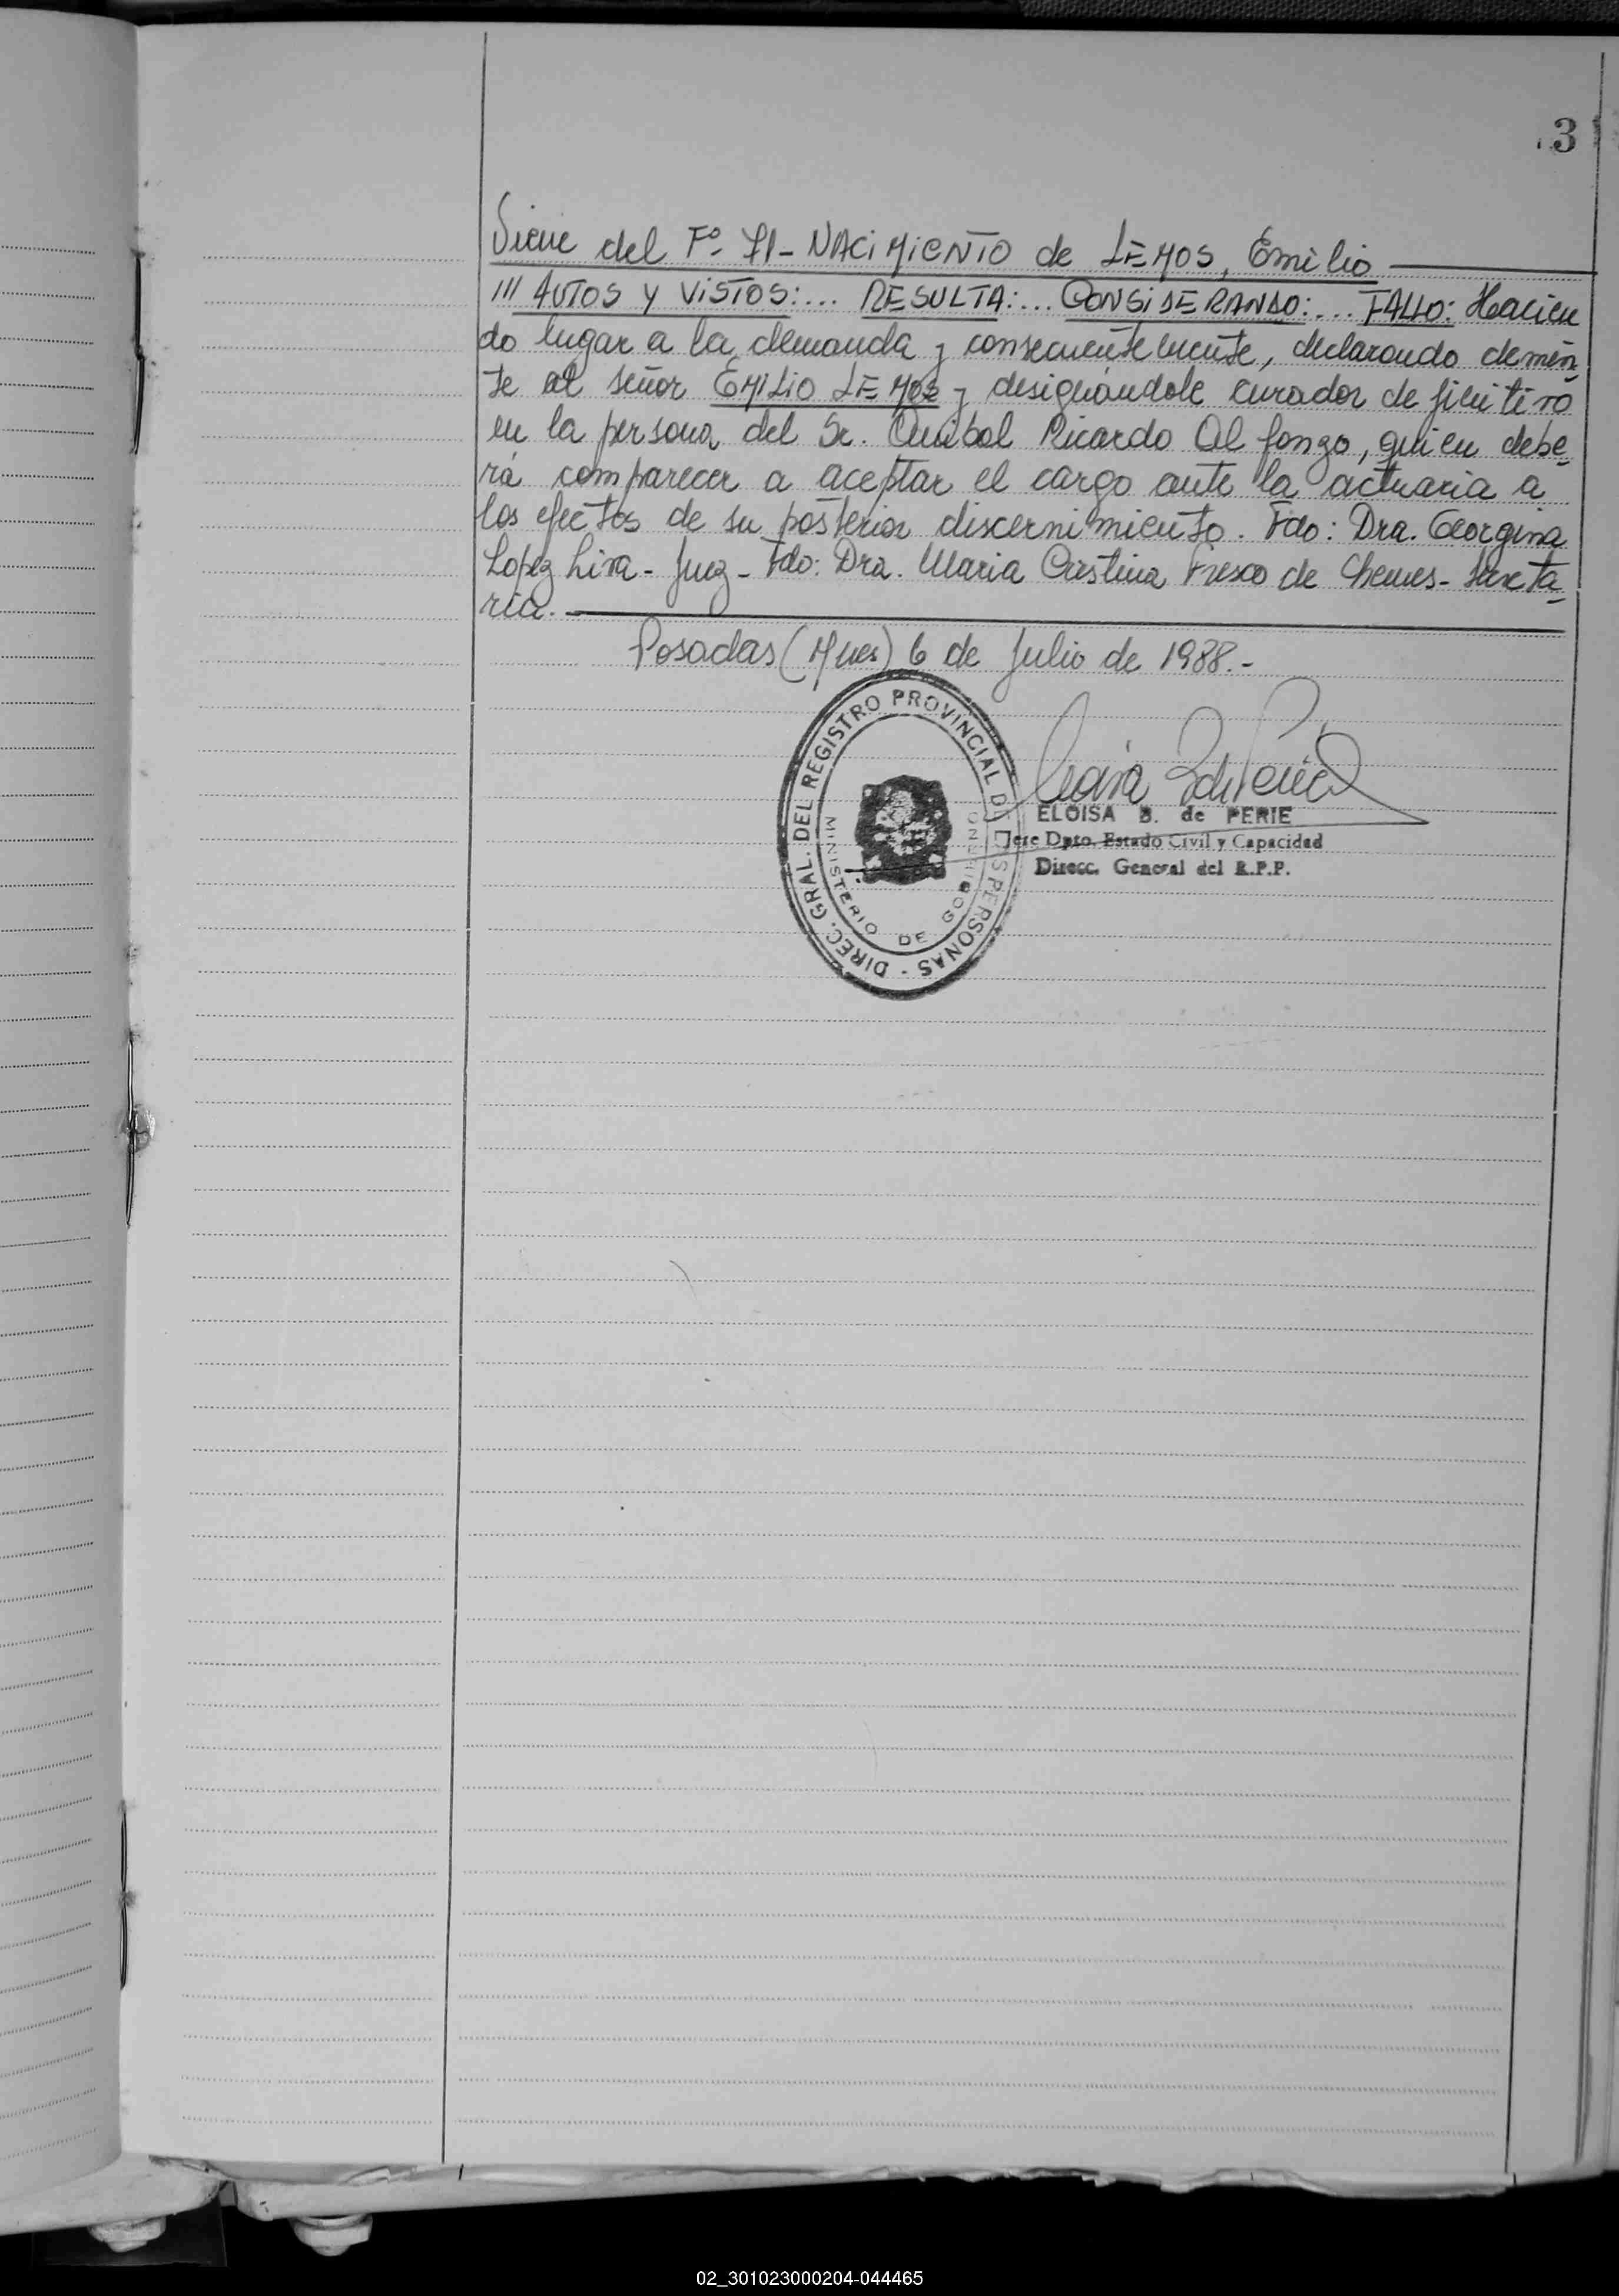 3
Viene del Fº 71 - NACIMIENTO de LEMOS, Emilio
/// AUTOS Y VISTOS:... RESULTA:... CONSIDERANDO:... FALLO: Hacien
do lugar a la demanda y consecuentemente, declarando demen-
te al señor EMILIO LEMOS y designándole curador definitivo
en la persona del Sr. Anibal Ricardo Alfonzo, quien debe-
rá comparecer a aceptar el cargo ante la actuaria a
los efectos de su posterior discernimiento. Fdo: Dra. Georgina
Lopez Liva - Juez - Fdo: Dra. Maria Cristina Fresco de Chemes - Secreta-
ria.
Posadas (Mnes) 6 de Julio de 1988.-
DIREC. GRAL. DEL REGISTRO PROVINCIAL DE LAS PERSONAS -
MINISTERIO DE GOBIERNO
ELOISA B. de PERIE
Jefe Dpto. Estado Civil y Capacidad
Direcc. General del R.P.P.
02_301023000204-044465